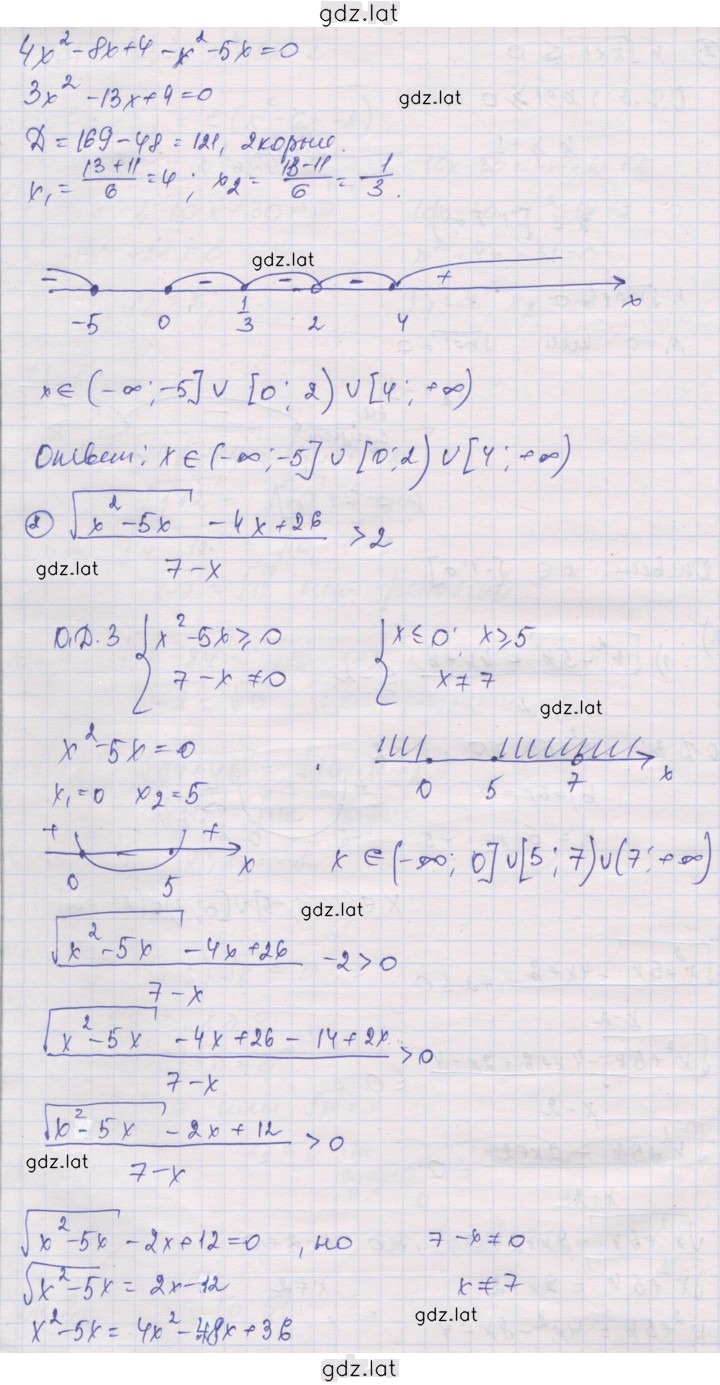 gdz.lat
4x² - 8x + 4 - x² - 5x = 0
3x² - 13x + 4 = 0
gdz.lat
Д = 169 - 48 = 121, 2 корня.
x₁ = (13 + 11)/6 = 4; x₂ = (13 - 11)/6 = 1/3.
gdz.lat
- - - - +
-5 0 1/3 2 4 x
x ∈ (-∞; -5] ∪ [0; 2) ∪ [4; +∞)
Ответ: x ∈ (-∞; -5] ∪ [0; 2) ∪ [4; +∞)
② (√(x² - 5x) - 4x + 26)/(7 - x) > 2
gdz.lat
О.Д.З { x² - 5x ≥ 0 { x ≤ 0; x ≥ 5
7 - x ≠ 0 x ≠ 7
gdz.lat
x² - 5x = 0
x₁ = 0 x₂ = 5
0 5 7 x
+ - +
0 5 x
x ∈ (-∞; 0] ∪ [5; 7) ∪ (7; +∞)
gdz.lat
(√(x² - 5x) - 4x + 26)/(7 - x) - 2 > 0
(√(x² - 5x) - 4x + 26 - 14 + 2x)/(7 - x) > 0
(√(x² - 5x) - 2x + 12)/(7 - x) > 0
gdz.lat
√(x² - 5x) - 2x + 12 = 0, но 7 - x ≠ 0
√(x² - 5x) = 2x - 12 x ≠ 7
gdz.lat
x² - 5x = 4x² - 48x + 36
gdz.lat